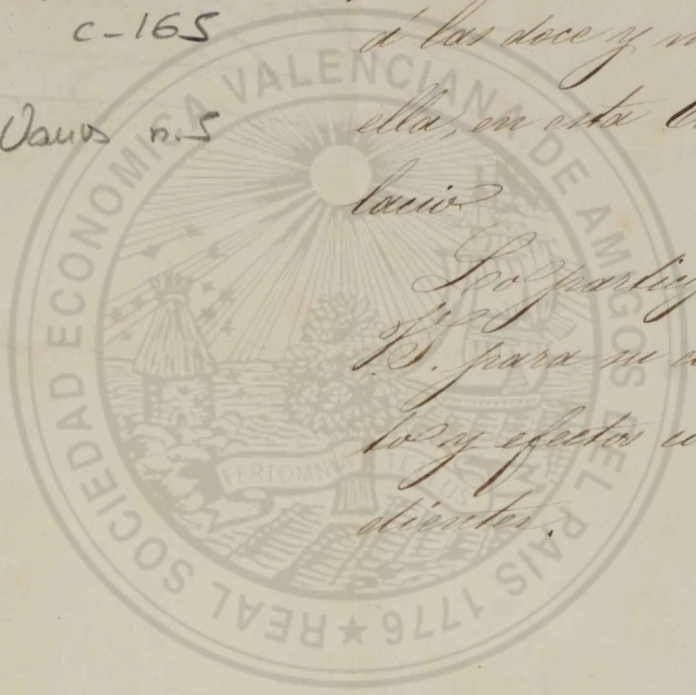 c-165
Varios n.5
á las doce y m
ella, en esta C
lacio
Lo particip
V. para su c
to y efectos c
dientes.
REAL SOCIEDAD ECONOMICA VALENCIANA DE AMIGOS DEL PAIS 1776
FERT OMNIA TELLUS